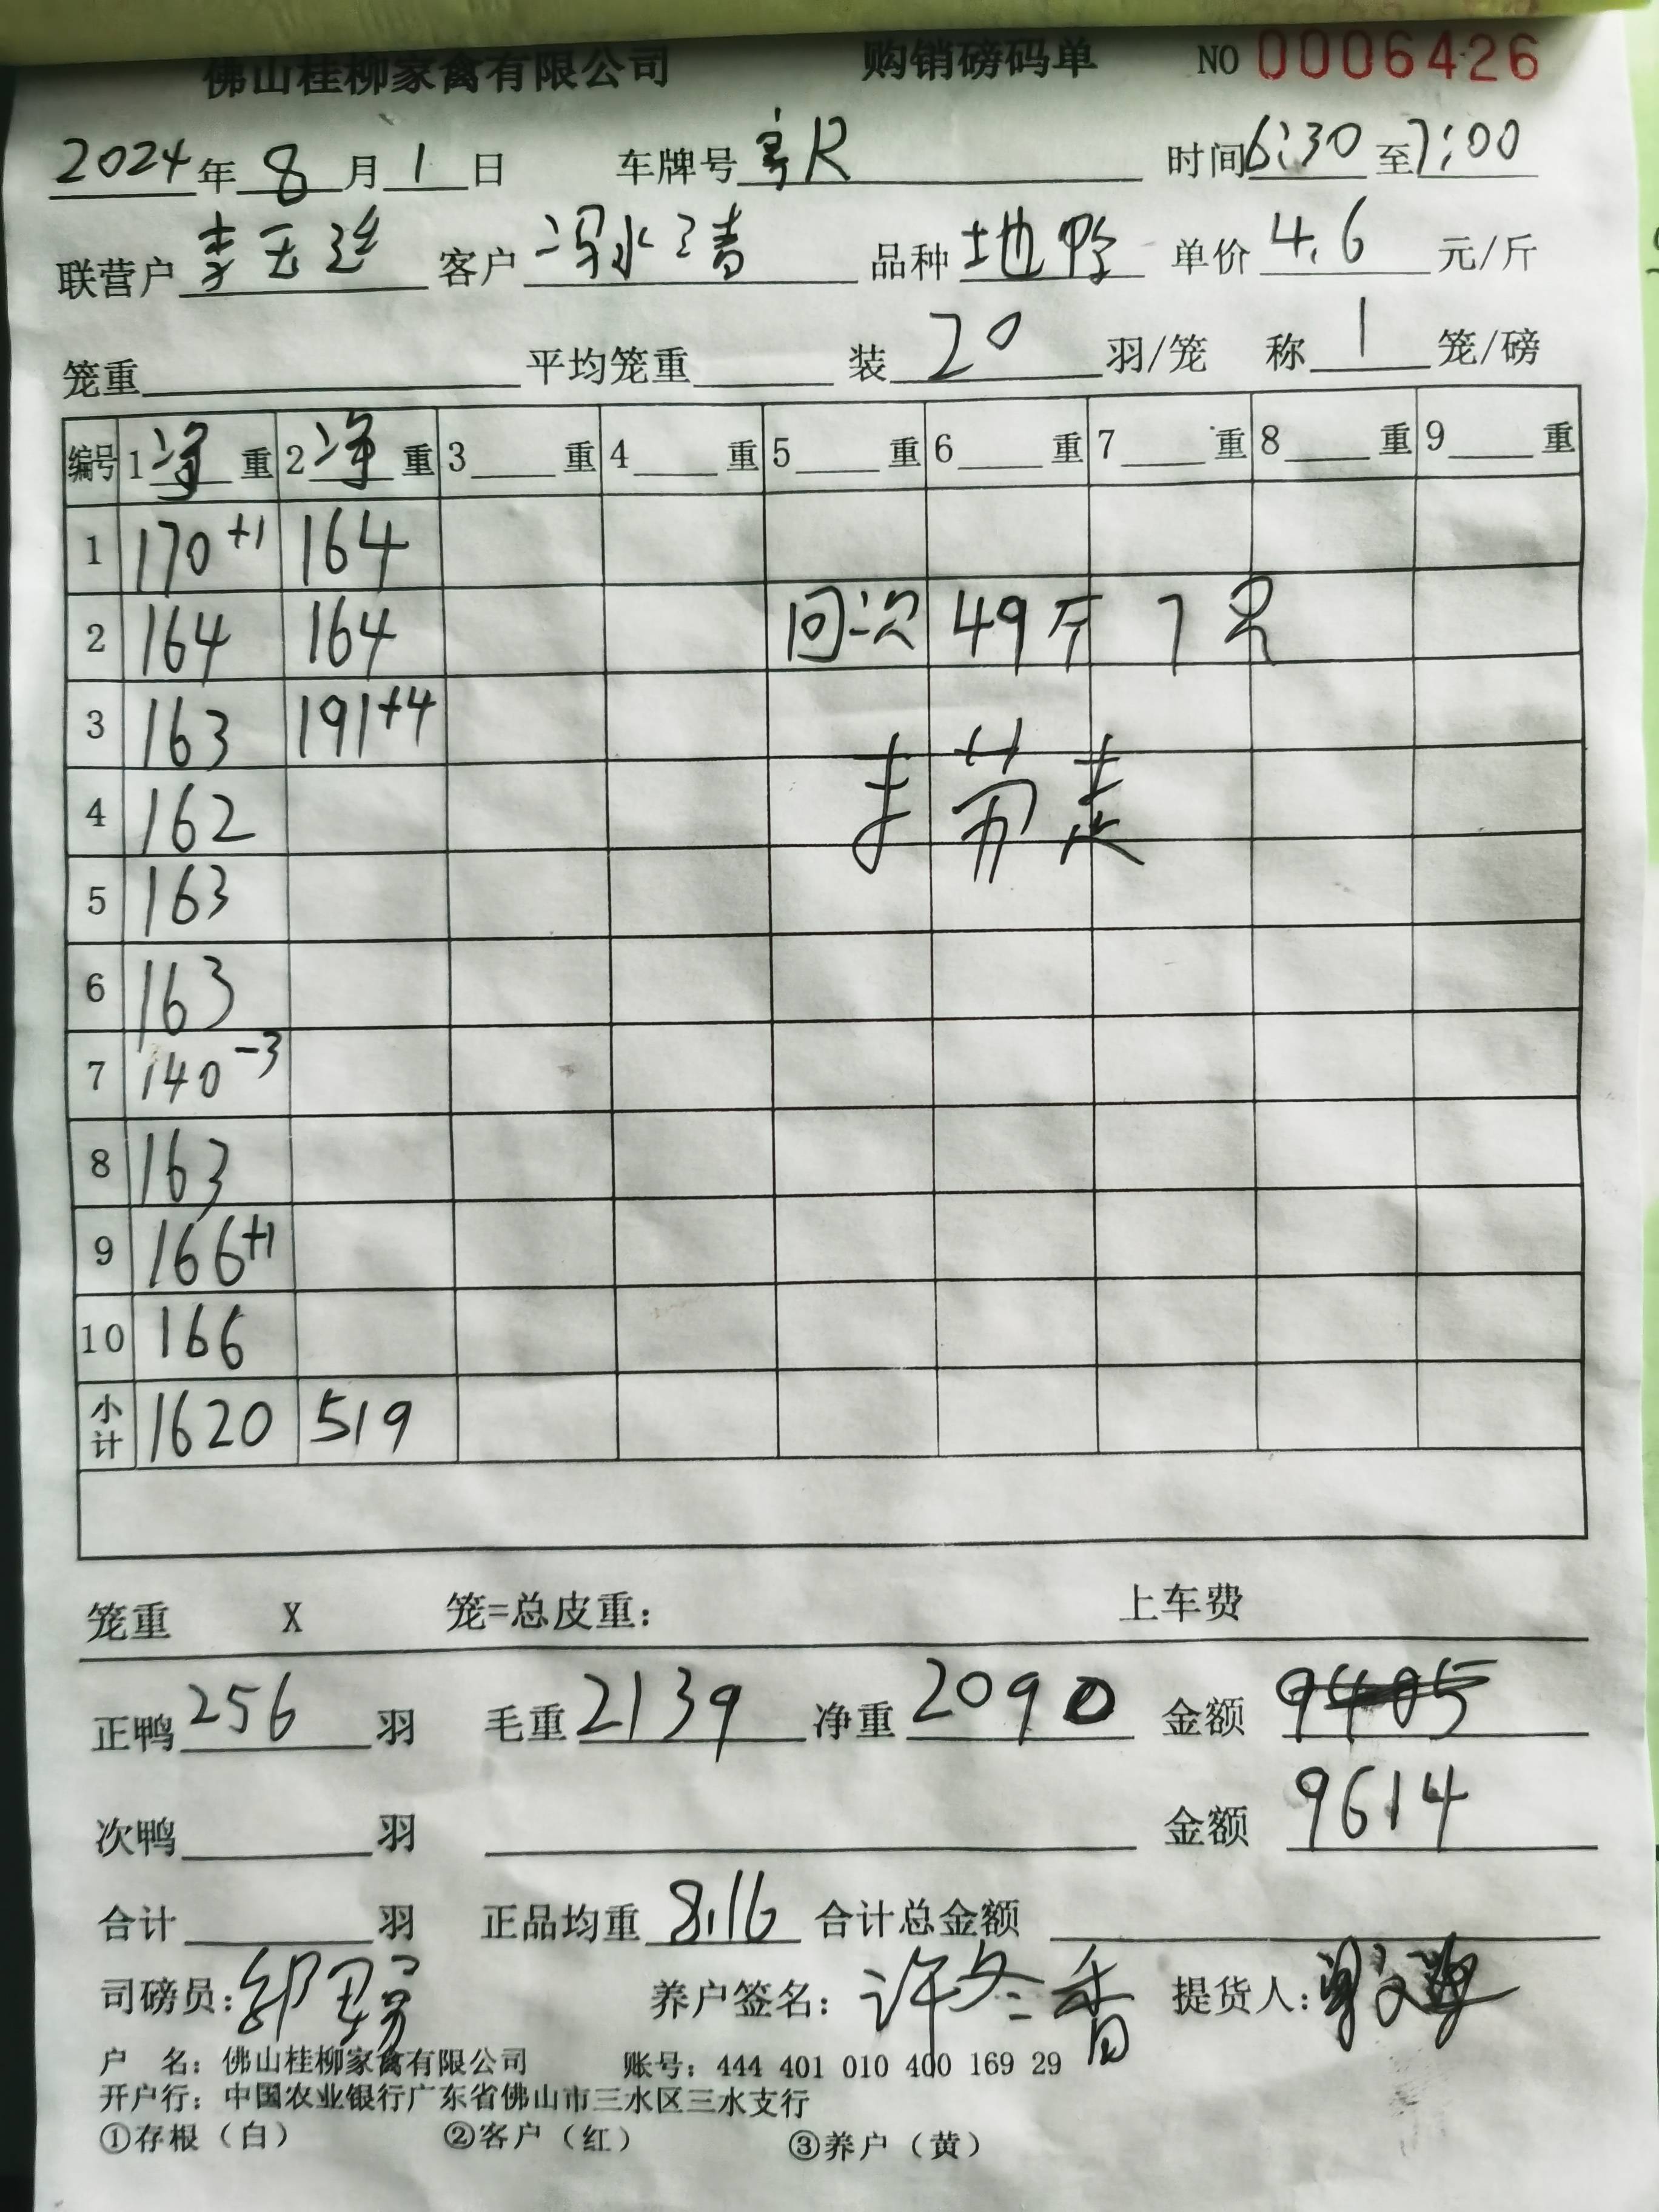 佛山桂柳家禽有限公司 购销磅码单 NO 0006426
2024年8月1日 车牌号 粤R 时间6:30至7:00
联营户 李玉 客户 冯水清 品种 地鸭 单价 4.6 元/斤
笼重 平均笼重 装 20 羽/笼 称 1 笼/磅
编号 1净重 2净重 3重 4重 5重 6重 7重 8重 9重
1 170+1 164
2 164 164 回次 49斤 7只
3 163 191+4
4 162
5 163
6 163
7 140-3
8 163
9 166+1
10 166
小计 1620 519
笼重 X 笼=总皮重: 上车费
正鸭 256 羽 毛重 2139 净重 2090 金额 9405
次鸭 羽 金额 9614
合计 羽 正品均重 8.16 合计总金额
司磅员: 养户签名: 许冬香 提货人:
户 名: 佛山桂柳家禽有限公司 账号: 444 401 010 400 169 29
开户行: 中国农业银行广东省佛山市三水区三水支行
①存根（白） ②客户（红） ③养户（黄）